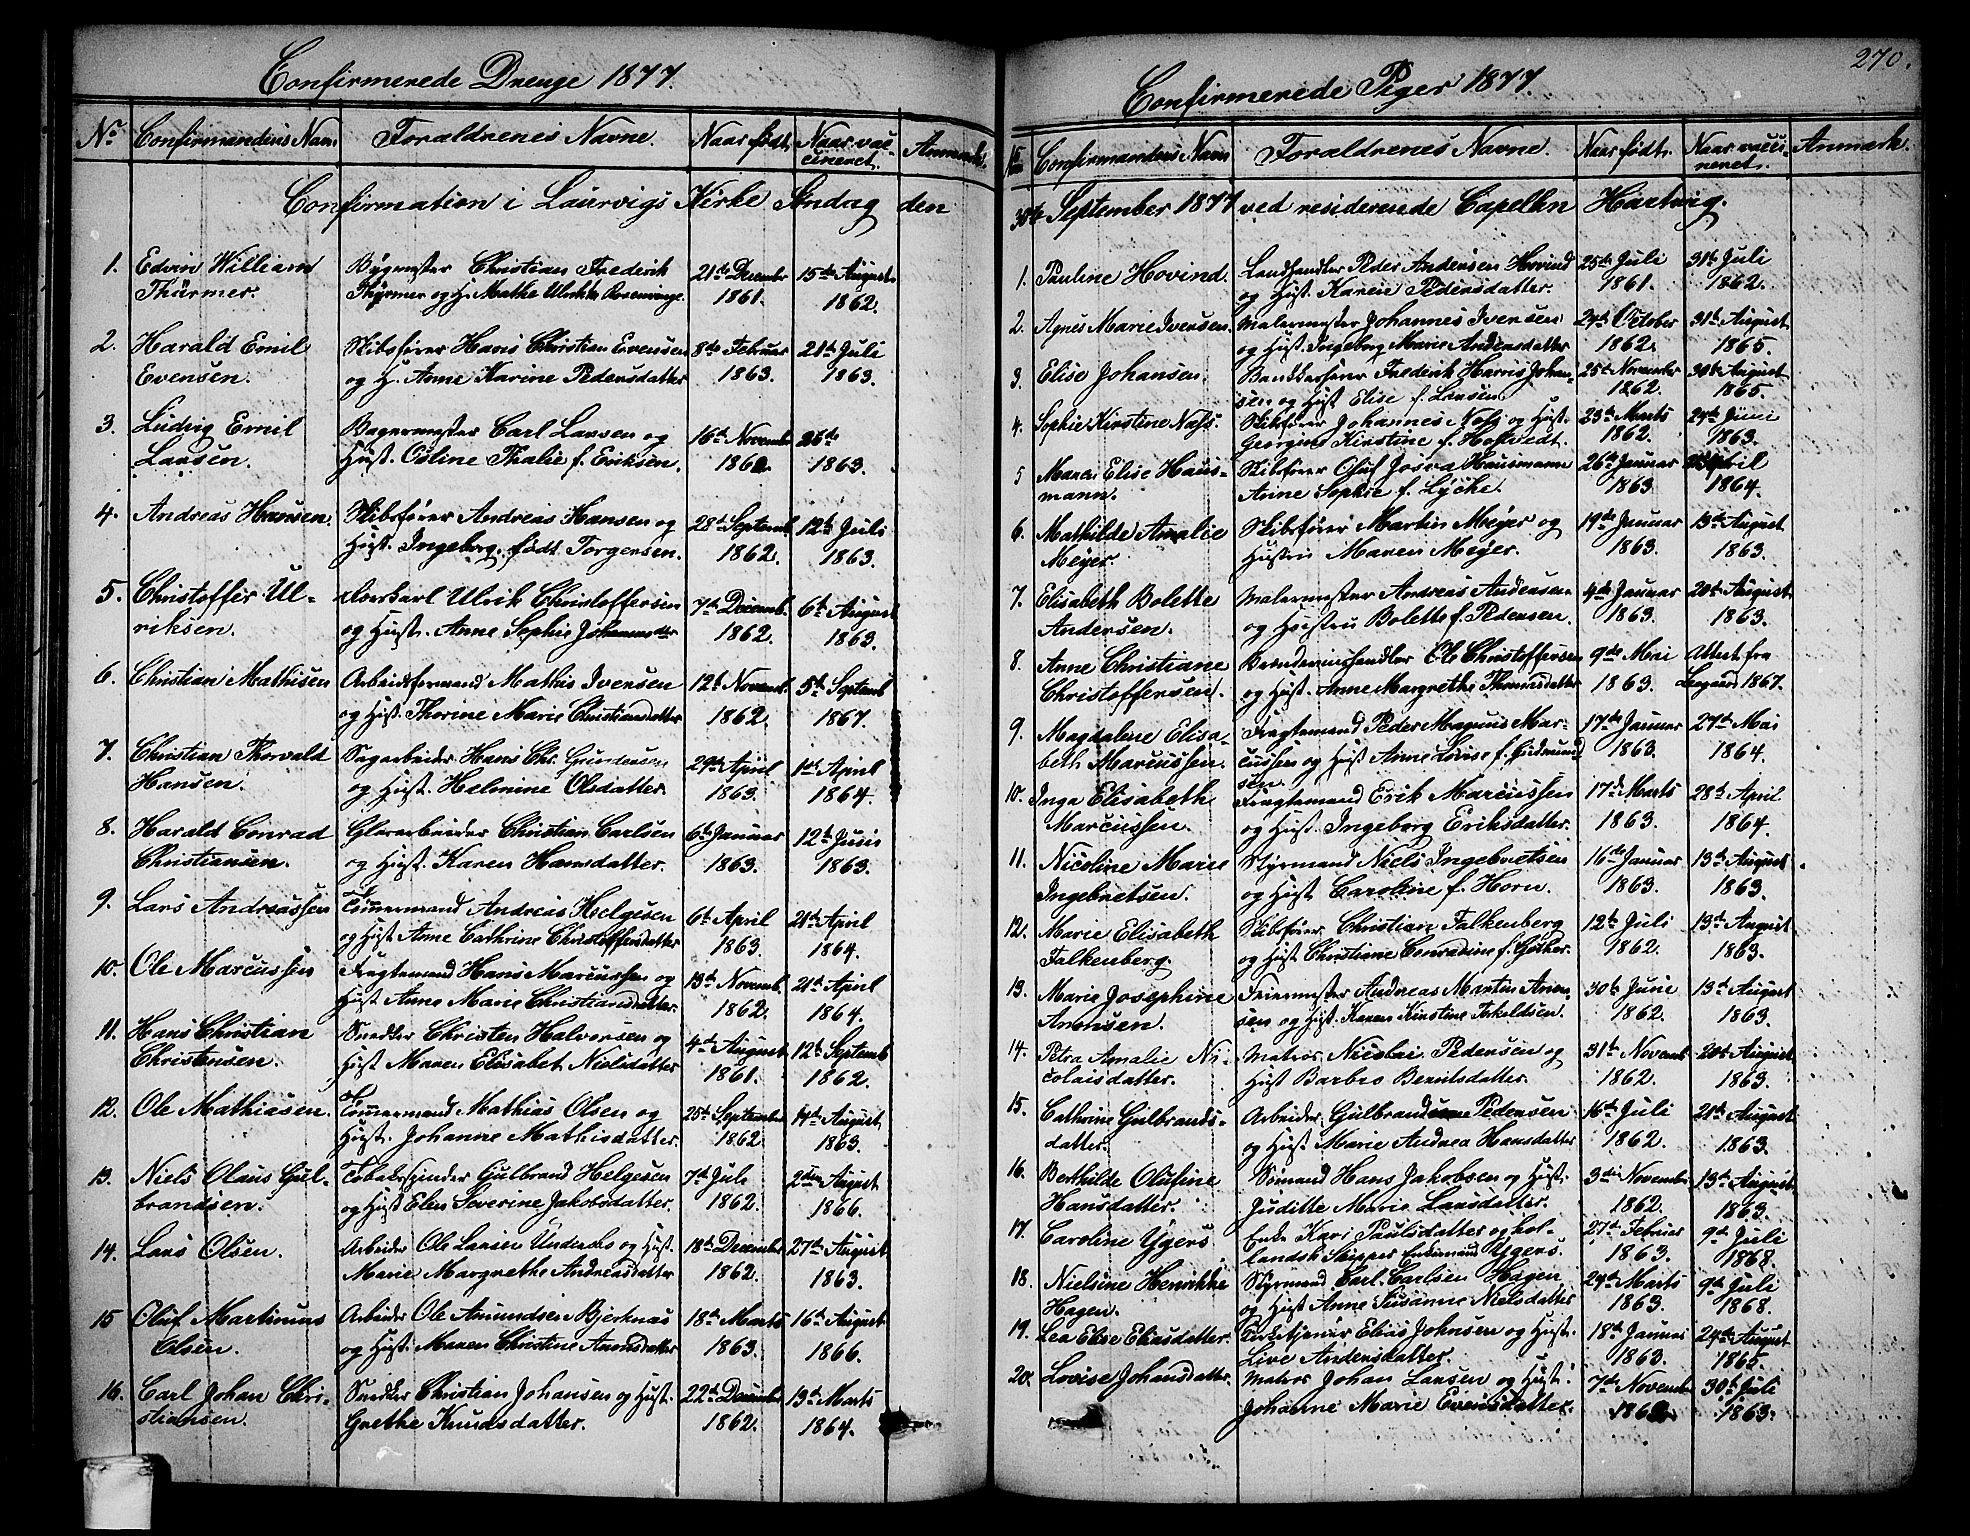 Confirmerede Drenge 1877.
No Confirmandens Navn Foraldrenes Navne. Naar født. Naar vac-
cineret. Anmærk.
Confirmation i Laurvigs Kirke Søndag den
1. Edvin William Bygmester Christian Frederik 21de December 15de August
Thürmer. Thürmer og H. Mathe Ulrikke 1861. 1862.
2. Harald Emil Skibsfører Hans Christian Evensen 8de Februar 21de Juli
Evensen. og H. Anne Karine Pedersdatter 1863. 1863.
3. Ludvig Emil Bagermester Carl Larsen og 16de November 26de
Larsen. Hust. Osline Thalie f. Eriksen. 1862 1863.
4. Andreas Hansen. Skibsfører Andreas Hansen og 28de Septemb. 12te Juli
Hust. Ingeborg født Torgersen. 1862. 1863.
5. Christoffer Ul- Ulrik Christoffersen 7de Decemb. 6te August
riksen. og Hust. Anne Sophie Johannesdtr 1862. 1863.
6. Christian Mathisen Arbeidsformand Mathis Ivensen 12te Novemb. 5te Septemb
og Hust. Thorine Marie Christiansdatter 1862. 1867.
7. Christian Thorvald Sagarbeider Hans Chr. Gundersen 29de April 1ste April
Hansen. og Hust. Helmine Olsdatter. 1863. 1864.
8. Harald Conrad Glasarbeider Christian Carlsen 6te Januar 12te Juni
Christiansen. og Hust. Karen Hansdatter. 1863. 1863.
9. Lars Andreassen Tømmermand Andreas Helgesen 6te April 21de April
og Hust Anne Cathrine Christoffersdatter 1863. 1864.
10. Ole Marcussen Fragtemand Hans Marcussen og 13de Novemb. 21de April
Hust Anne Marie Christiansdatter. 1862. 1864.
11. Hans Christian Snedker Christen Halvorsen og 4de August 12te Septemb
Christensen. Hust Maren Elisabet Nielsdatter 1861. 1862.
12. Ole Mathiasen. Tømmermand Mathias Olsen og 25de September 14de August
Hust. Johanne Mathisdatter. 1862. 1863.
13. Niels Olaus Gul- Tobaksspinder Gulbrand Helgesen 7de Juli 2den August
brandsen. og Hust Elen Severine Jakobsdatter. 1862. 1866.
14. Lars Olsen. Arbeider Ole Larsen Undersbo og Hust. 18de December 27de August
Marie Margrethe Andreasdatter 1862. 1863.
15 Oluf Martinius Arbeider Ole Amundsen Bjerknæs 18de Marts 16de August
Olsen. og Hust. Maren Christine Amundsdatter 1863. 1866.
16. Carl Johan Chri- Snedker Christian Johansen og Hust. 22de December 13de Marts
stiansen. Grethe Knudsdatter. 1862. 1864.
270.
Confirmerede Piger 1877.
No Confirmandens Navn Foraldrenes Navne. Naar født. Naar vacci-
neret. Anmærk.
30te September 1877 ved residerende Capellan Hartvig.
1. Pauline Hovind. Landhandler Peder Andersen Hovind 25de Juli 31te Juli
og Hust. Karen Pedersdatter. 1861. 1862.
2. Agnes Marie Iversen. Malermester Johannes Iversen 24de October 31te August
og Hust. Ingeborg Marie Andreasdatter 1862. 1865.
3. Elise Johansen. Frederik Harris Johan- 25de November 30te August
sen og Hust Elise f. Larsen. 1862. 1865.
4. Sophie Kirstine Nass. Skibsfører Johannes Nass og Hust. 23de Marts 24de Juni
Georgine Kirstine f. Hofstvedt. 1862. 1863.
5 Maren Elise Haus- Skibsfører Oluf Josva Hausmann 26de Januar April
mann. Anne Sophie f. Lycke. 1863 1864.
6. Mathilde Amalie Skibsfører Martin Meyer og 19de Januar 13de August
Meyer. Hustru Maren Meyer. 1863. 1863.
7. Elisabeth Bolette Malermester Andreas Andersen 4de Januar 20de August
Andersen. og Hustru Bolette f. Pedersen. 1863. 1863.
8. Anne Christiane Brændevinshandler Ole Christoffersen 9de Mai Attest fra
Christoffersen. og Hust. Anne Margrethe Thomasdatter 1863. Langaard 1867.
9. Magdalene Elisa- Fragtemand Peder Magnus Mar- 17de Januar 27de Mai
beth Marcussen. cussen og Hust Anne Lovise f. Gudmund 1863. 1864.
sen
10. Inga Elisabeth Fragtemand Erik Marcussen 17de Marts 28de April
Marcussen. og Hust. Ingeborg Eriksdatter. 1863. 1864.
11. Nicoline Marie Styrmand Niels Ingebretsen 16de Januar 13de August
Ingebretsen. og Hust Caroline f. Horn. 1863. 1863.
12. Marie Elisabeth Skibsfører Christian Falkenberg 12te Juli 13de August
Falkenberg. og Hust Christiane Conradine f. Gother. 1862. 1863.
13. Marie Josephine Feiermester Andreas Martin Aron- 30te Juni 13de August
Aronsen. sen og Hust. Karen Kirstine Terkeldsen. 1862. 1863.
14. Petra Amalie Ni- Matros Nicolai Pedersen og 31te Novemb 20de August
colaisdatter. Hust Barbro Berntsdatter. 1862. 1863.
15. Cathrine Gulbrands- Arbeider Gulbrand Pedersen 16de Juli 21de August
datter. og Hust Marie Andrea Hansdatter 1862. 1863.
16. Berthilde Olufine Sømand Hans Jakobsen og Hust. 3die November 13de August
Hansdatter. Juditte Marie Larsdatter. 1862. 1863.
17. Caroline Ygers Enke Kari Paulsdatter og hol- 27de Februar 9de Juli
landsk Skipper Ferdinand Ygers. 1863. 1868.
18. Nielsine Henrikke Styrmand Carl Carlsen Hagen 24de Marts 9de Juli
Hagen. og Hust Anne Susanne Nielsdatter 1863. 1868.
19. Lea Elise Eliasdatter. Kirketjener Elias Johnsen og Hust. 18de Januar 24de August
Live Andersdatter. 1863. 1865.
20. Lovise Johansdatter. Matros Johan Larsen og Hust. 7de Novemb 30te Juli
Johanne Marie Evensdatter. 1862. 1863.